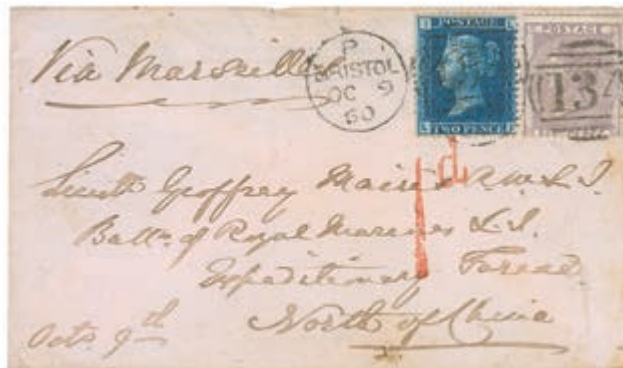 Via Marseilles
P
BRISTOL
OC 9
60
POSTAGE
TWO PENCE
POSTAGE
134
1d
Lieut Geoffrey Mairis R.M.L.I.
Battn. of Royal Marines L.I.
Expeditionary Force
North of China
Octr 9th